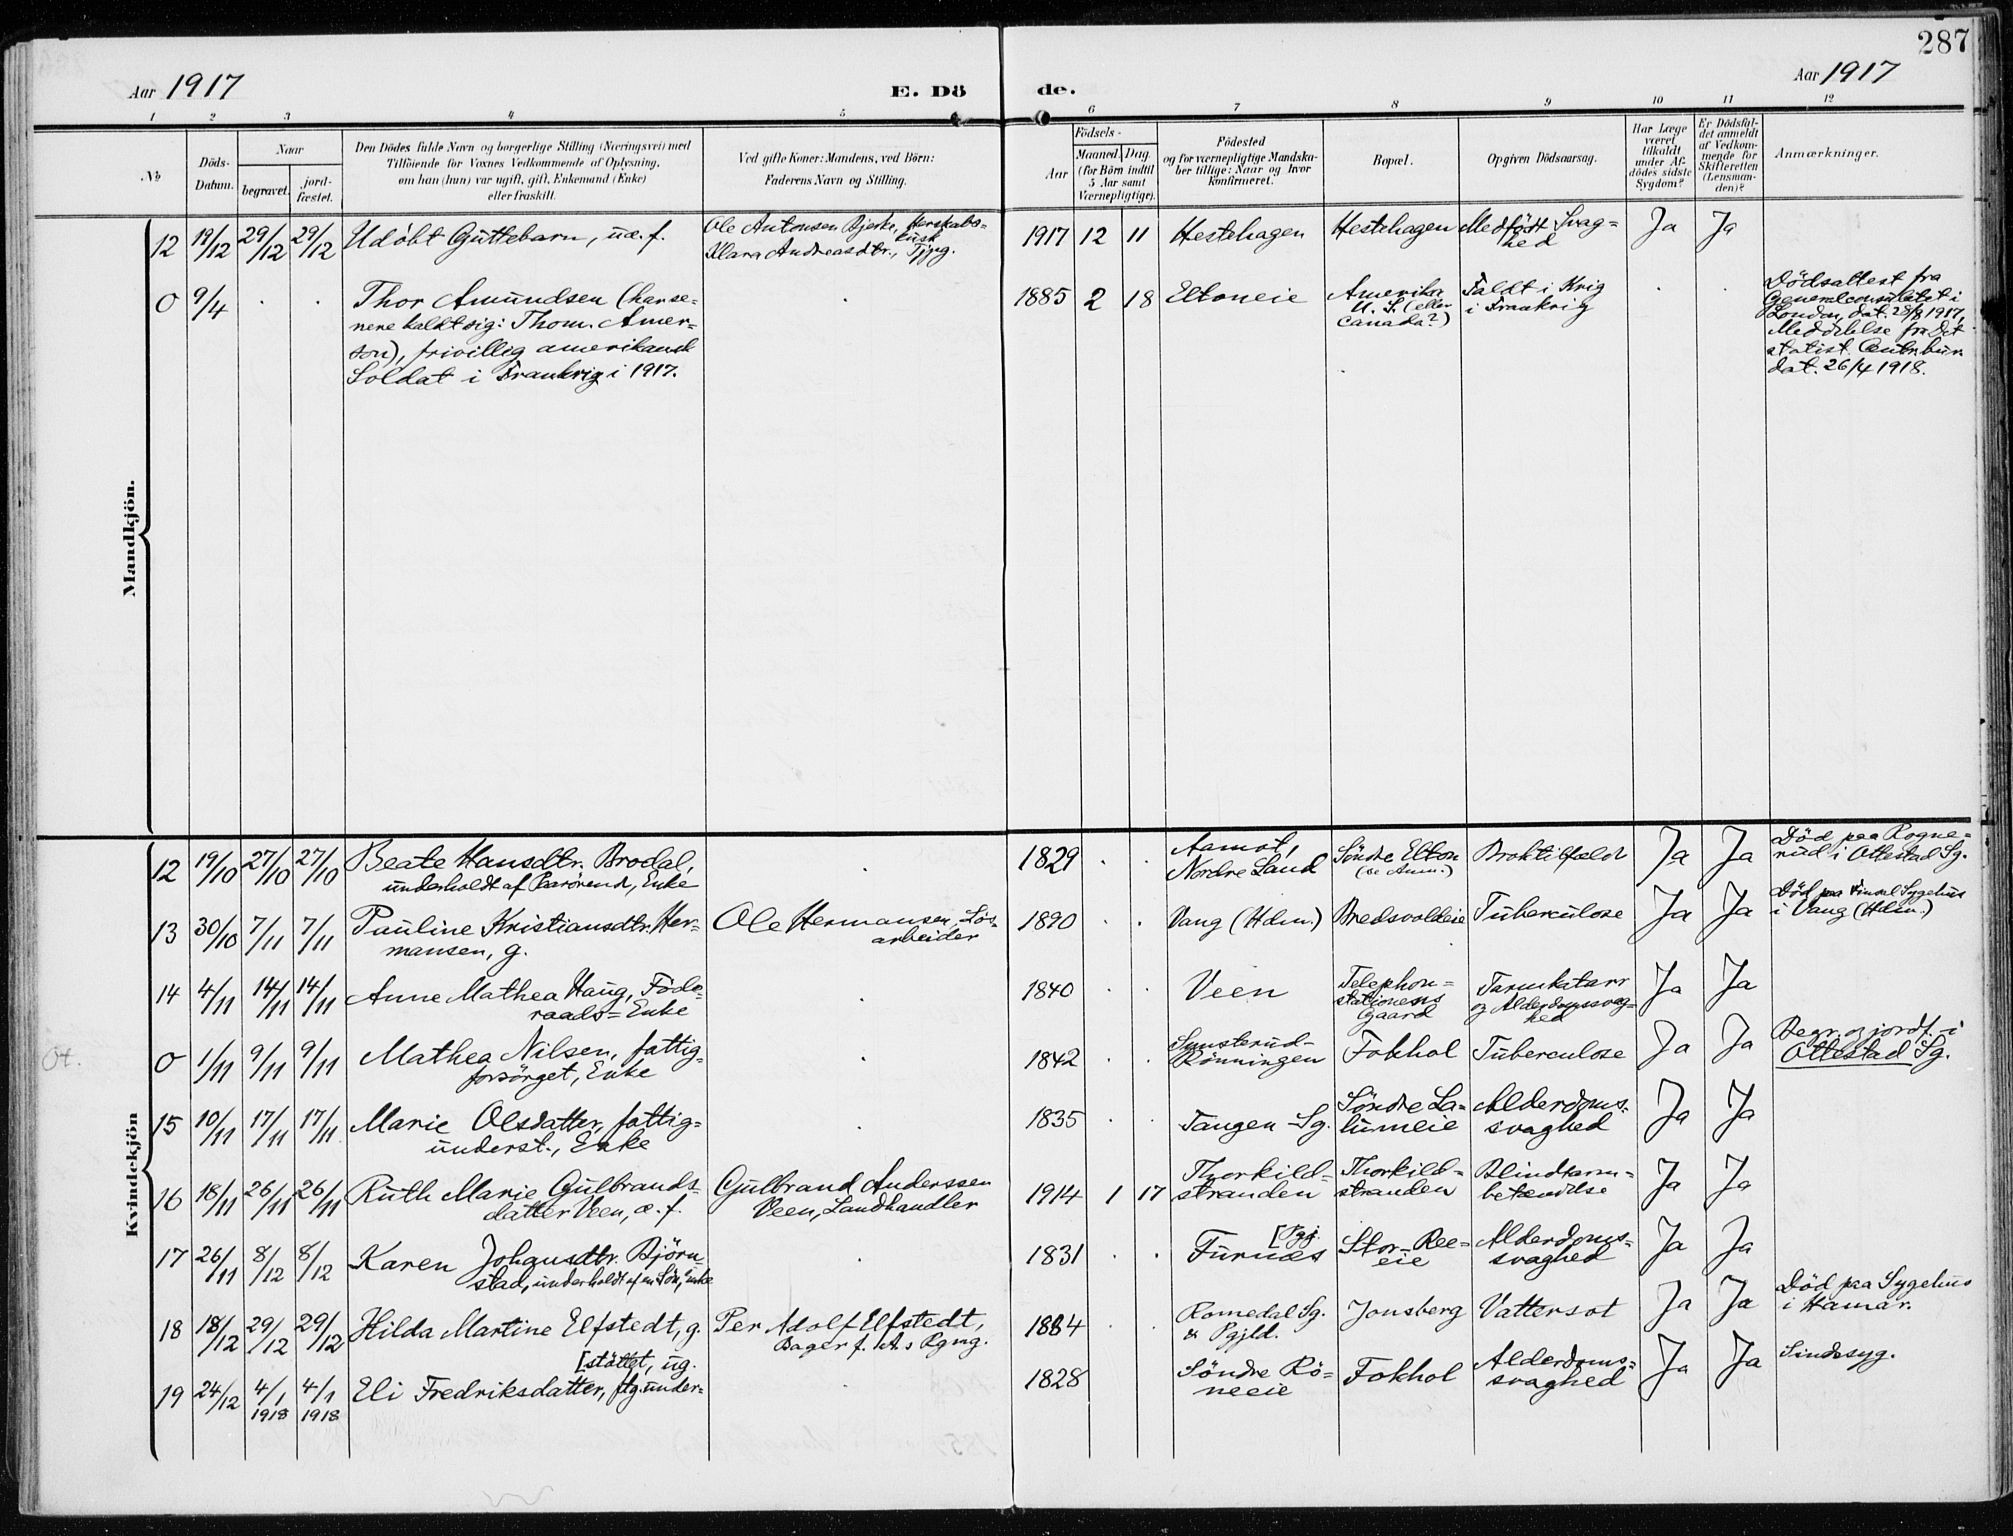 287
Aar 1917
E. Dö
de.
Aar 1917
1 2 3 4 5 6 7 8 9 10 11 12
No
Döds-
Datum.
Naar
begravet.
jord-
fæstet.
Den Dödes fulde Navn og borgerlige Stilling (Næringsvei) med
Tilföiende for Voxnes Vedkommende af Oplysning,
om han (hun) var ugift, gift, Enkemand (Enke)
eller fraskilt.
Ved gifte Koner: Mandens, ved Börn:
Faderens Navn og Stilling.
Födsels-
Aar
Maaned. Dag.
(for Börn indtil
5 Aar samt
Værnepligtige).
Födested
og for værnepligtige Mandska-
ber tillige: Naar og hvor
konfirmeret.
Bopæl.
Opgiven Dödsaarsag.
Har Læge
været
tilkaldt
under Af-
dödes sidste
Sygdom?
Er Dödsfal-
det anmeldt
af Vedkom-
mende for
Skifteretten
(Lensman-
den)?
Anmærkninger.
Mandkjön.
12 19/12 29/12 29/12 Udöbt Guttebarn, uæ. f.
Ole Antonsen Bjerke, Herskabs-
kusk
Klara Andreasdtr., Tjpg.
1917 12 11 Hestehagen Hestehagen Medfödt Svag=
hed
Ja Ja
0 9/4 . . Thor Amundsen (han se-
nere kaldt sig: Thom. Amer-
son), frivillig amerikansk
Soldat i Frankrig i 1917.
.
1885 2 18 Eltoneie
Amerika
U. S. (eller
Canada?)
Faldt i Krig
i Frankrig
. .
Dödsattest fra
Generalconsulatet i
London, dat. 28/8 1917,
Meddelelse fra Det
statist. Centr.bur.
dat. 26/4 1918.
Kvindekjön
12 19/10 27/10 27/10 Beate Hansdtr. Brodal,
underholdt af Paarörend, Enke
.
1829 . . Aamot,
Nordre Land
Söndre Elton
(se Anm.)
Broktilfælde
Ja Ja
Död paa Rogne=
rud i Ottestad Sg.
13 30/10 7/11 7/11 Pauline Kristiansdtr. Her-
mansen, g.
Ole Hermansen, Lös-
arbeider
1890 . Vang (Hdm.) Bredsvoldeie Tuberculose
Ja Ja
Död paa Sygehus
i Vang (Hdm.)
14 4/11 14/11 14/11 Anne Mathea Haug, Föde-
raads=Enke
.
1840 . . Veen
Telephon=
stationens
Gaard
Tarmkatarr
og Alderdomssvag=
hed
Ja Ja
Ot.
0 1/11 9/11 9/11 Mathea Nilsen, fattig-
forsörget, Enke
.
1842 . .
Rönningen
Fokhol Tuberculose
Ja Ja
Begr. og jordf. i
Ottestad Sg.
15 10/11 17/11 17/11 Marie Olsdatter, fattig-
underst., Enke
.
1835 . . Tangen Sg.
Söndre La=
lumeie
Alderdoms-
svaghed
Ja Ja
16 18/11 26/11 26/11 Ruth Marie Gulbrands-
datter Veen, æ. f.
Gulbrand Anderssen
Veen, Landhandler
1914 1 17 Thorkild=
stranden
Thorkild=
stranden
Blindtarm=
betændelse
Ja Ja
17 26/11 8/12 8/12 Karen Johansdtr. Björn-
stad, underholdt af en Sön, Enke
.
1831 . . [Pgj.
Furnæs
Stor-Ree=
eie
Alderdoms-
svaghed
Ja Ja
18 18/12 29/12 29/12 Hilda Martine Elfstedt, g.
Per Adolf Elfstedt,
Bager
1884 . . Romedal Sg.
& Pgjld.
Jonsberg Vattersot
Ja Ja
Död paa Sygehus
i Hamar.
[stöttet, ug.
19 24/12 4/1 1918 4/1 1918 Eli Fredriksdatter, ftg.under-
.
1828 Söndre Rö=
neeie
Fokhol
Alderdoms=
svaghed
Ja Ja
Sindssyg.